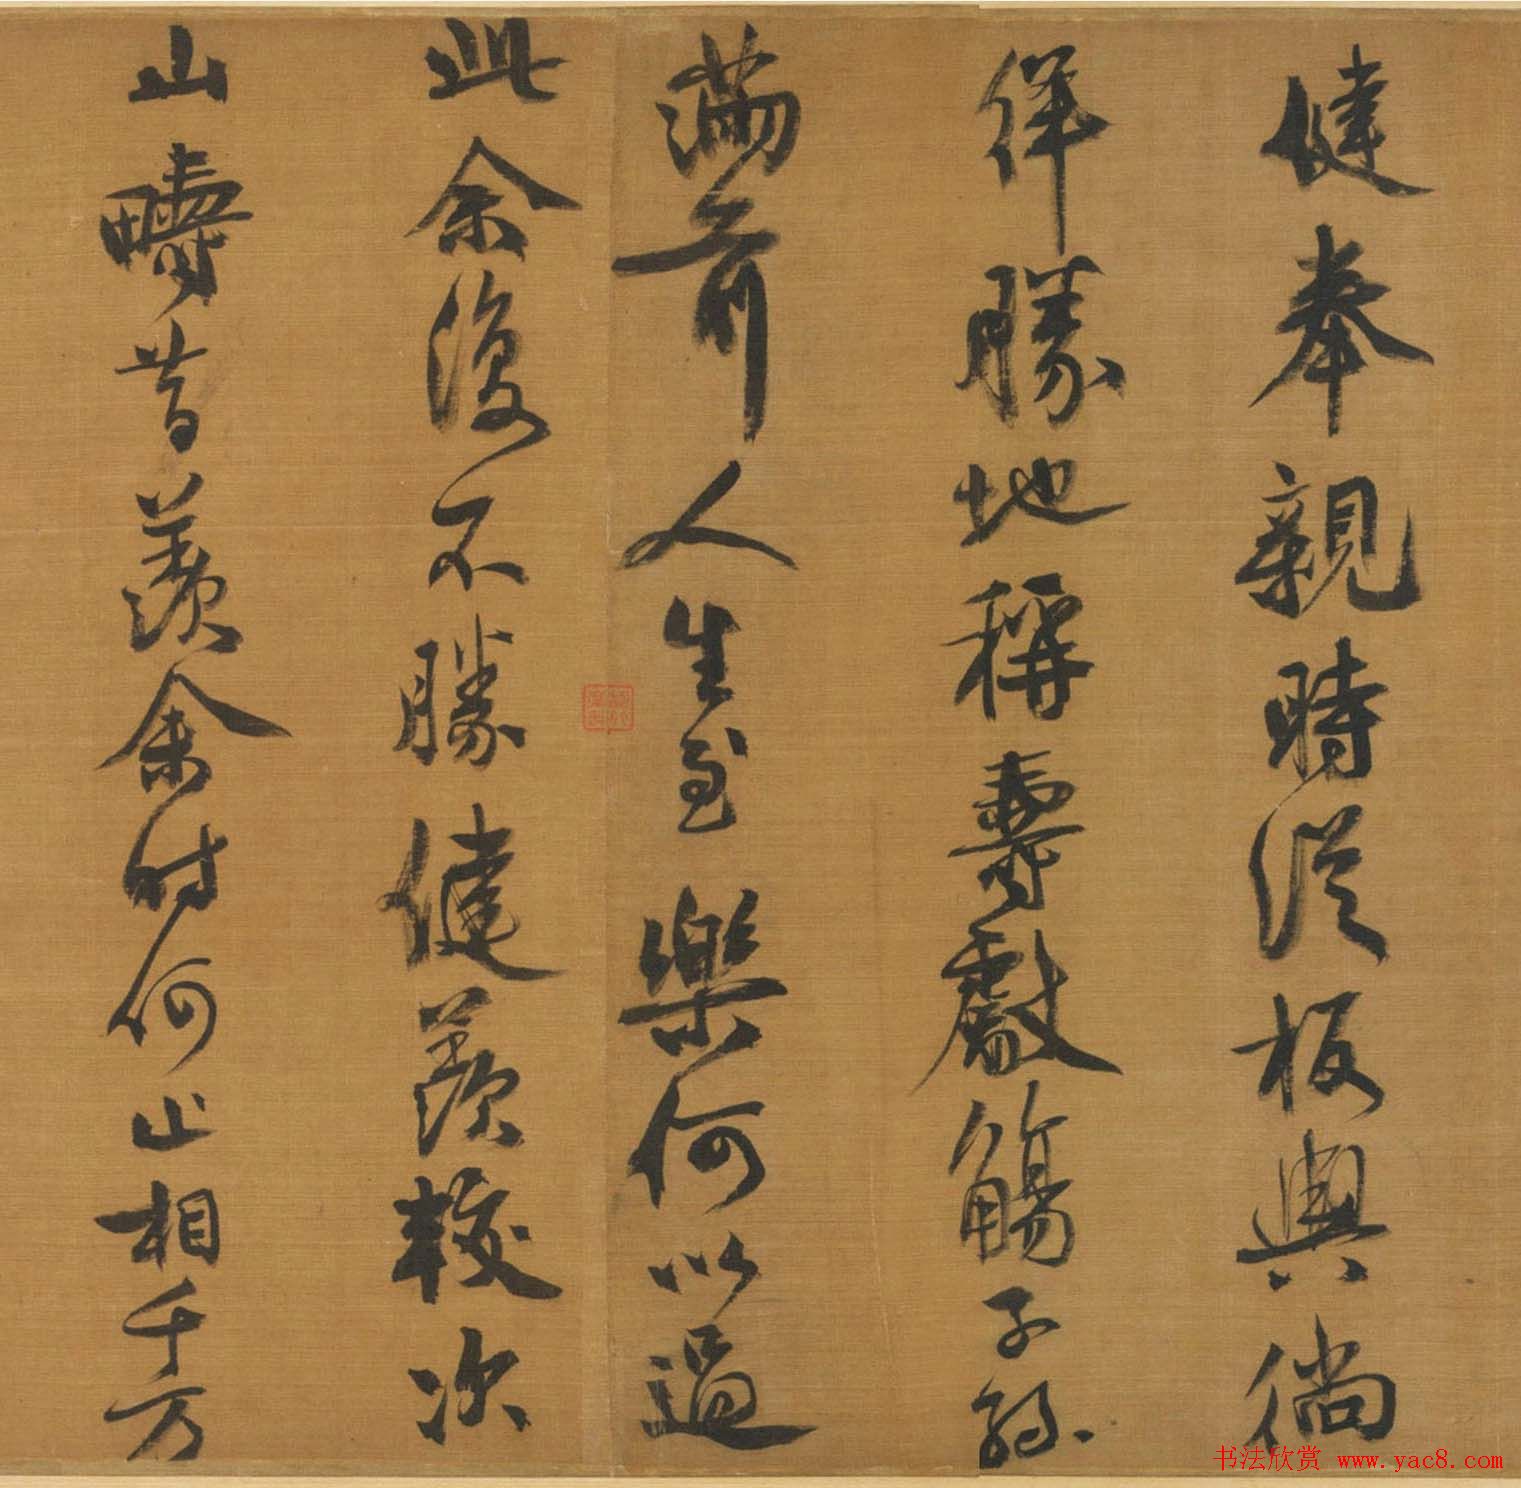 健奉親時從板輿徜
徉勝地稱壽獻觴子孫
滿前人生至樂何以過
此余復不勝健羨較次
山疇昔羨余時何止相千万
书法欣赏 www.yac8.com